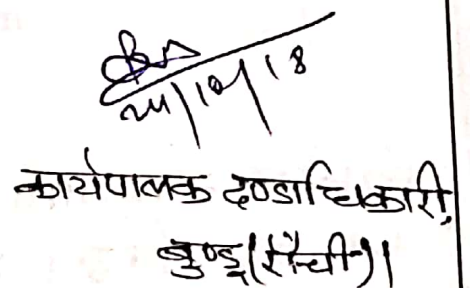 24/10/18
कार्यपालक दण्डाधिकारी,
बुण्डू (राँची)।